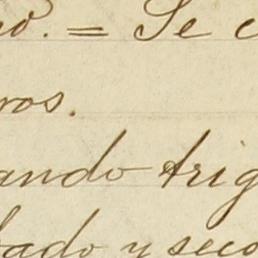 o. = Se c
ros.
ando trig
bado y seco